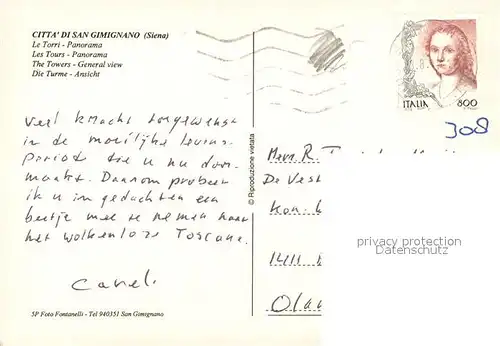 CITTA' DI SAN GIMIGNANO (Siena)
Le Torri - Panorama
Les Tours - Panorama
The Towers - General view
Die Turme - Ansicht
Veel kracht toegewenst
in de moeilijke levens-
periode die u nu door-
maakt. Daarom probeer
ik u in gedachten een
beetje mee te nemen naar
het wolkenloze Toscane.
Carel
5P Foto Fontanelli - Tel 940351 San Gimignano
© Riproduzione vietata
ITALIA 800
308
Mevr. R.
De Vest
Kon.
1411
privacy protection
Datenschutz